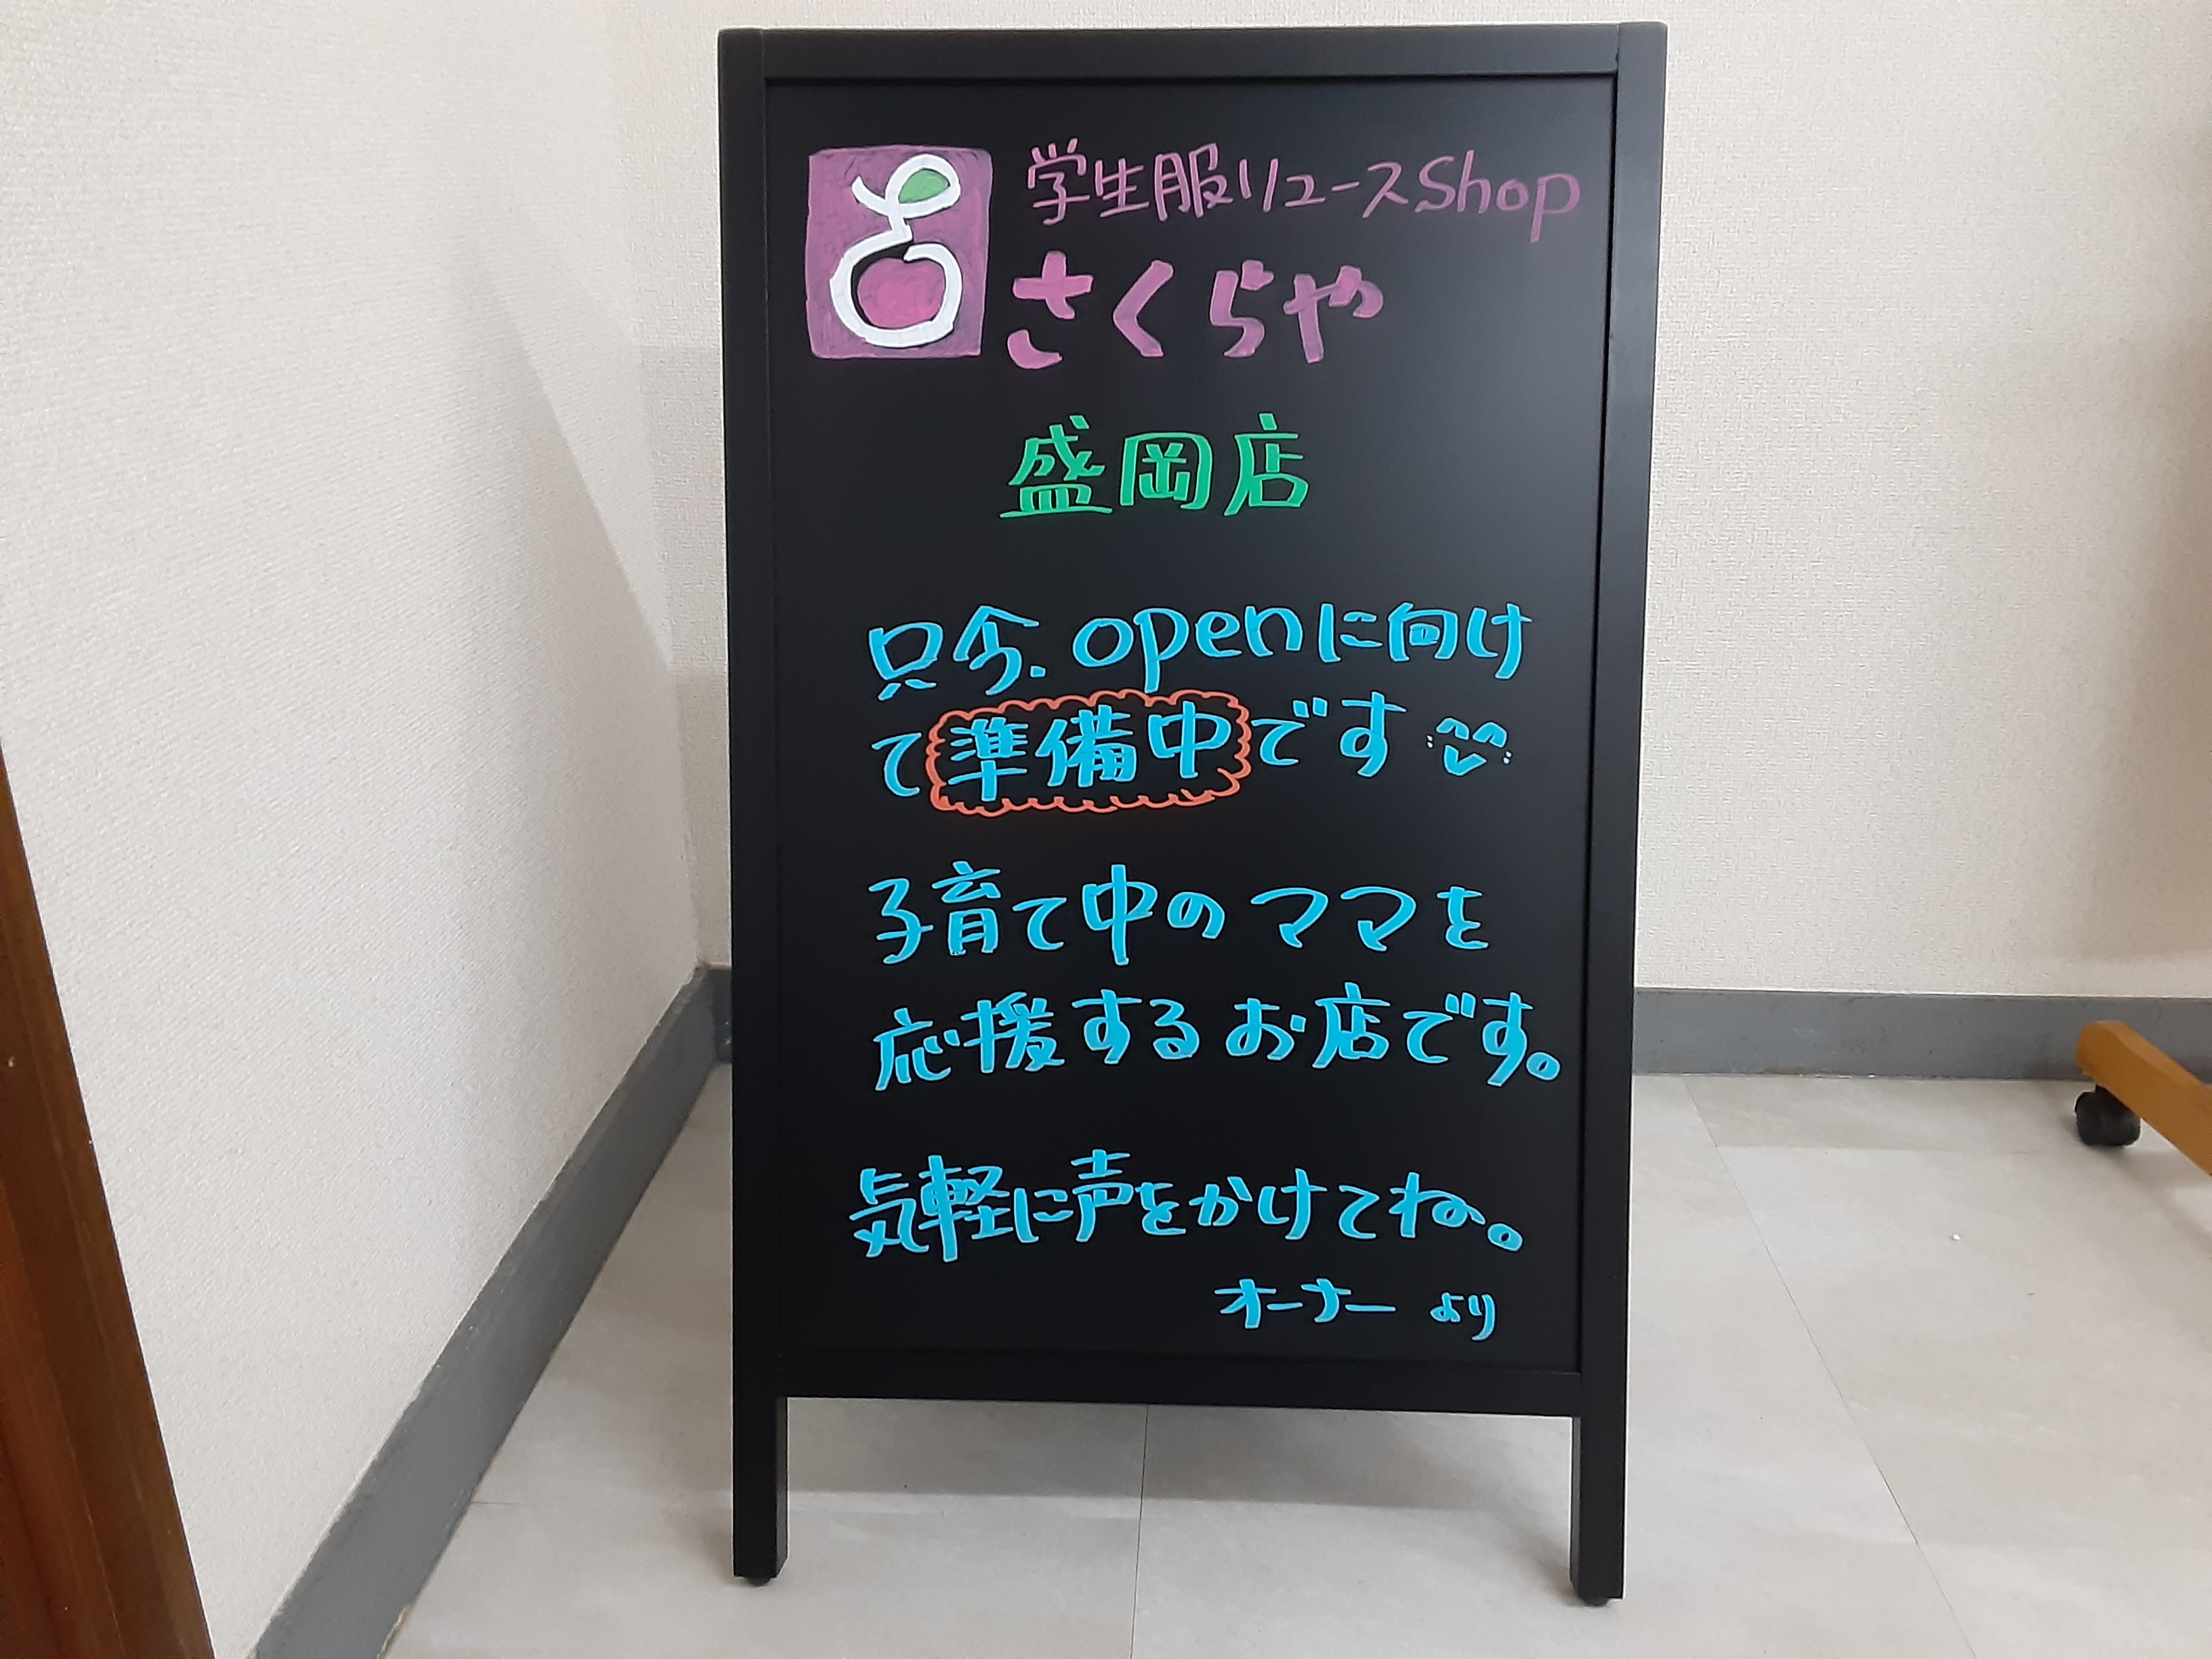 学生服リユースShop
さくらや
盛岡店
只今.openに向け
て準備中です
子育て中のママを
応援するお店です。
気軽に声をかけてね。
オーナーより